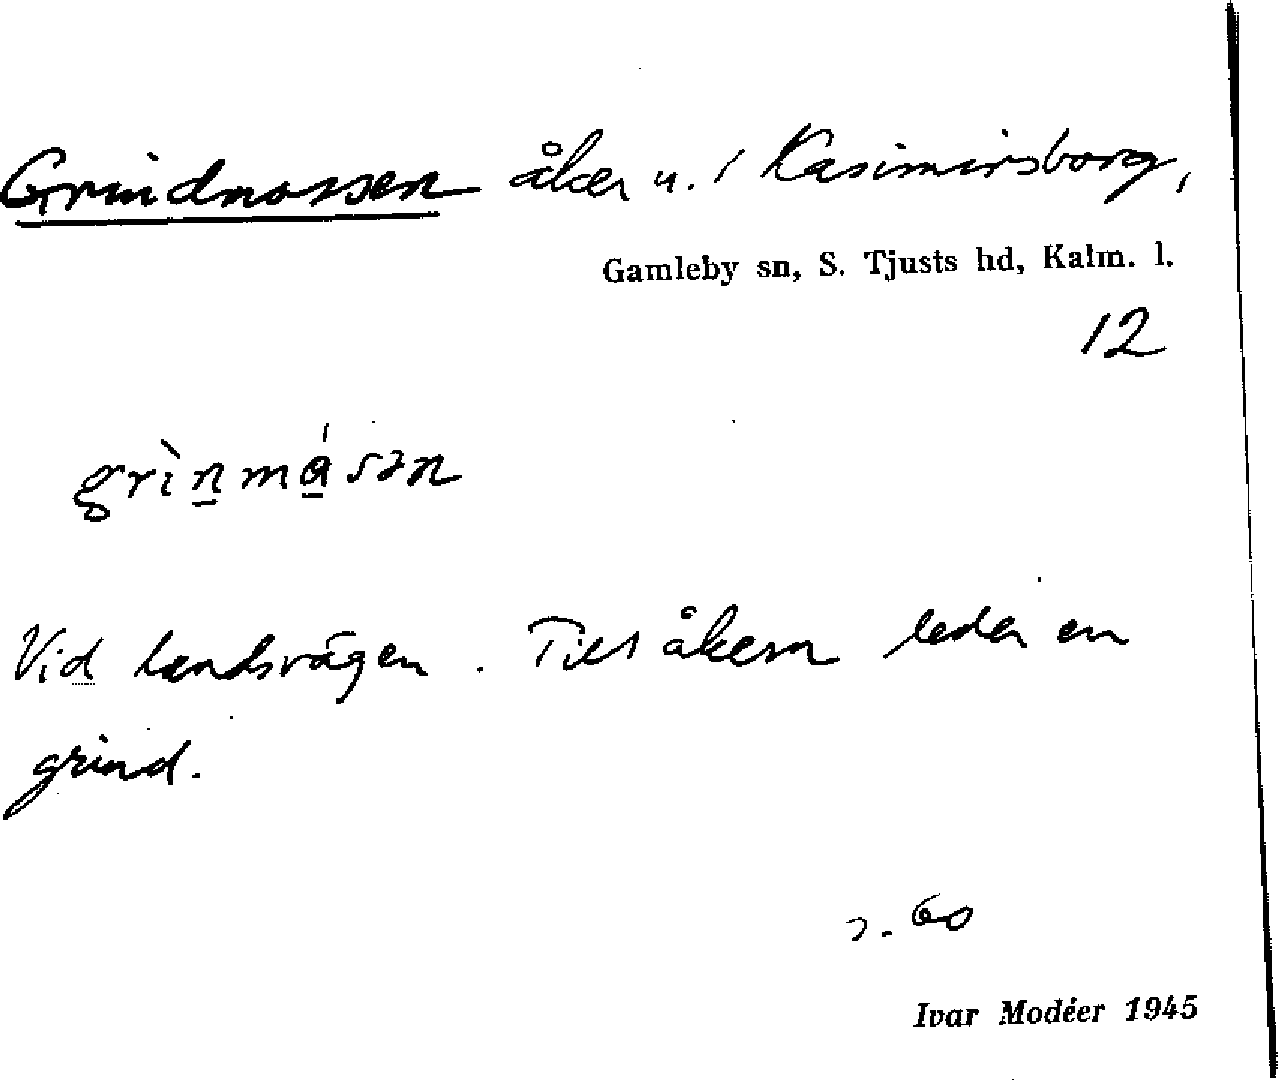 Grindmossen åker u. / Kasimirsborg,
Gamleby sn, S. Tjusts hd, Kalm. l.
12
grìnmásən
Vid landsvägen. Till åkern leder en
grind.
s. 60
Ivar Modéer 1945